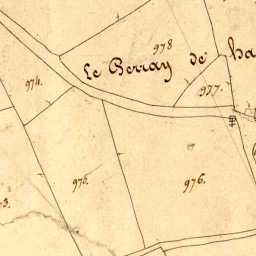 978
Le Berray de ha
974.
977.
975.
976.
3.